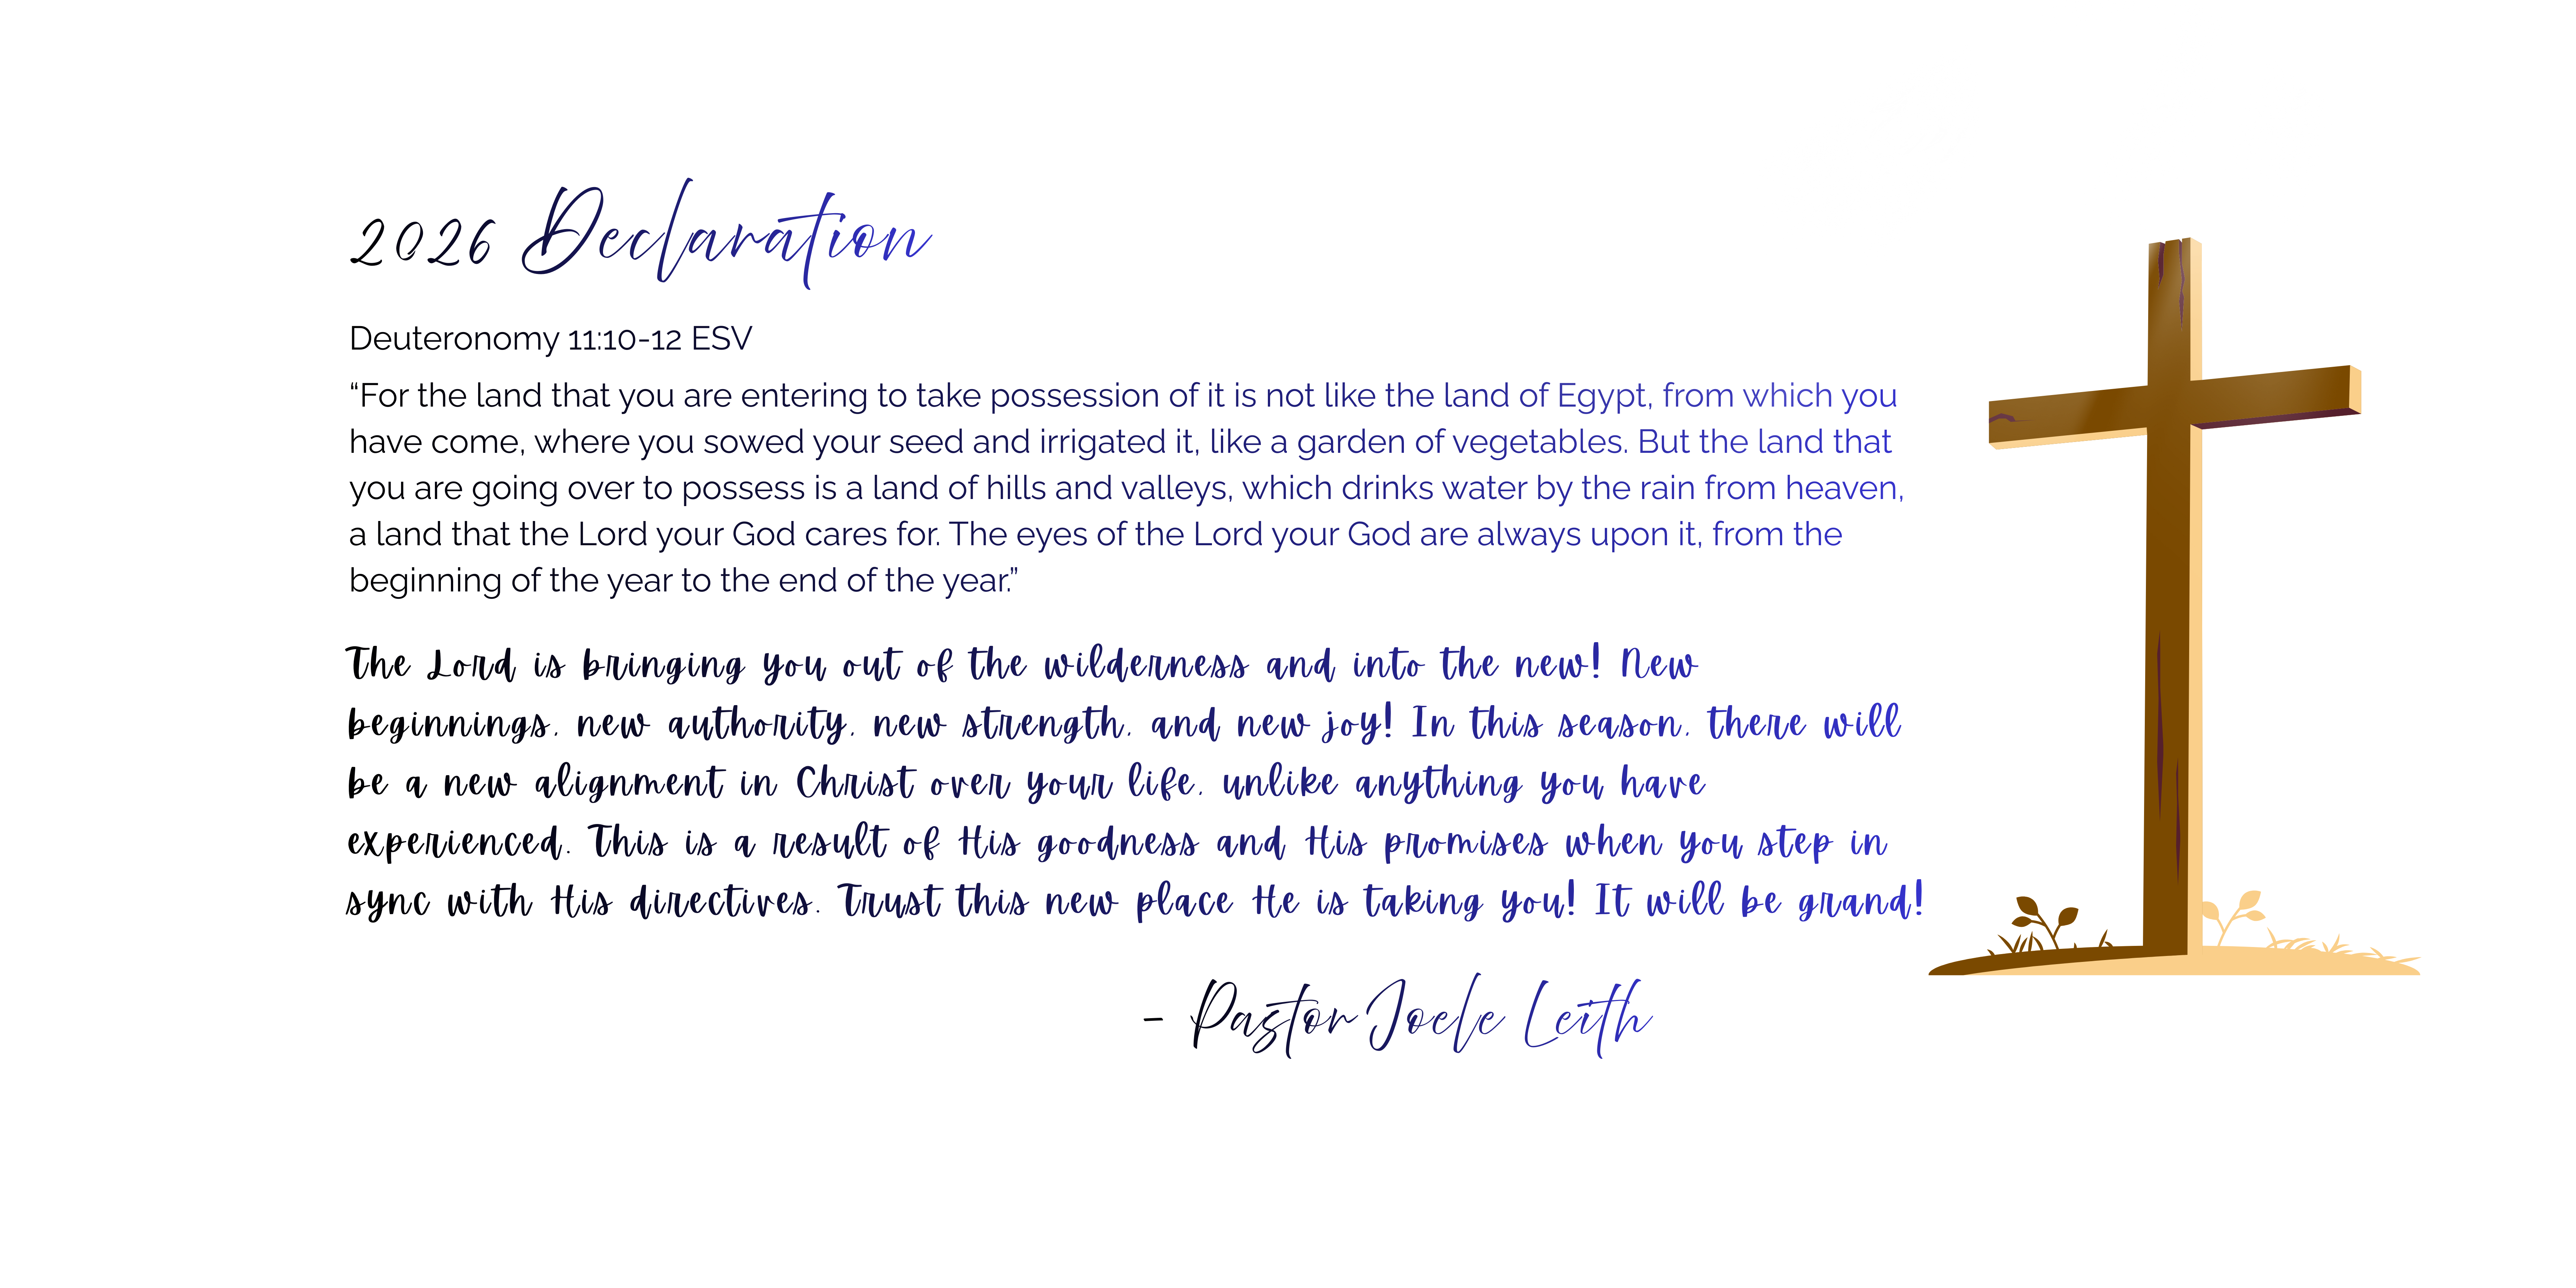 2026 Declaration
Deuteronomy 11:10-12 ESV
“For the land that you are entering to take possession of it is not like the land of Egypt, from which you
have come, where you sowed your seed and irrigated it, like a garden of vegetables. But the land that
you are going over to possess is a land of hills and valleys, which drinks water by the rain from heaven,
a land that the Lord your God cares for. The eyes of the Lord your God are always upon it, from the
beginning of the year to the end of the year.”
The Lord is bringing you out of the wilderness and into the new! New
beginnings, new authority, new strength, and new joy! In this season, there will
be a new alignment in Christ over your life, unlike anything you have
experienced. This is a result of His goodness and His promises when you step in
sync with His directives. Trust this new place He is taking you! It will be grand!
- Pastor Joele Leith